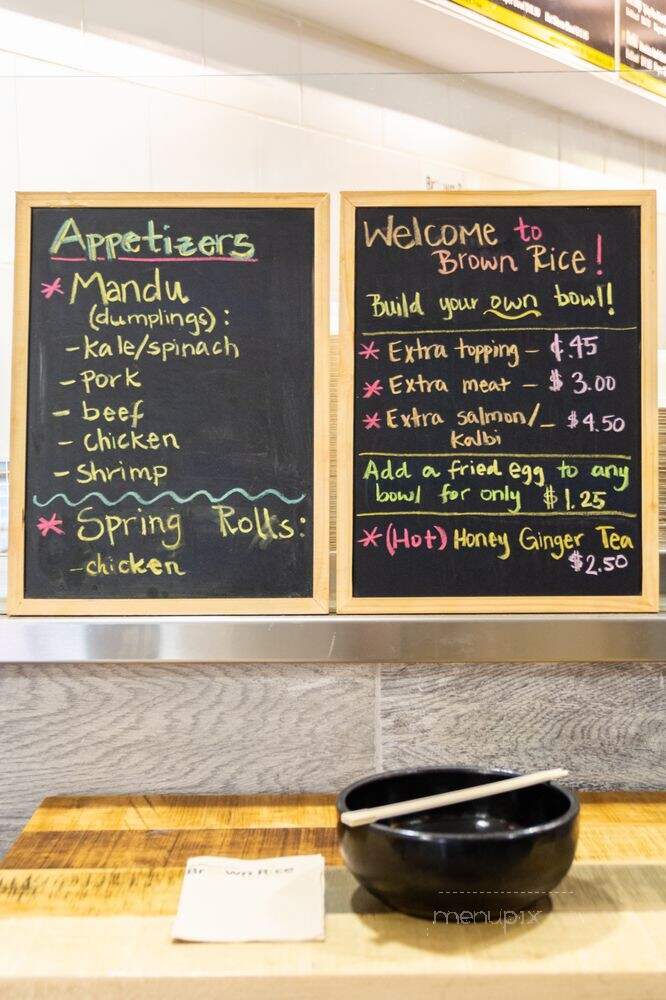 Appetizers
* Mandu
(dumplings):
- kale/spinach
- pork
- beef
- chicken
- Shrimp
* Spring Rolls:
- chicken
Welcome to
Brown Rice!
Build your own bowl!
* Extra topping - ¢.45
* Extra meat - $3.00
* Extra salmon/ - $4.50
kalbi
Add a fried egg to any
bowl for only $1.25
* (Hot) Honey Ginger Tea
$2.50
Brown Rice
menupix